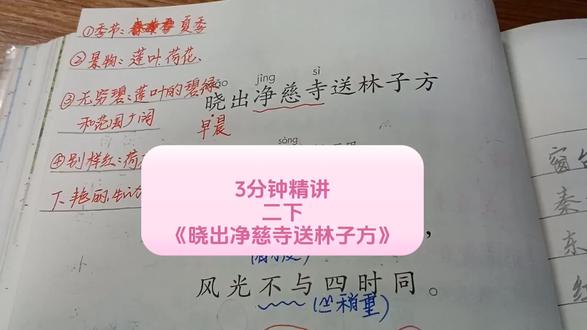 ①季节：夏季
②景物：莲叶荷花、
③无穷碧：莲叶的碧绿
和范围广阔
④别样红：荷
下艳丽生动
jìng sì
晓出净慈寺送林子方
早晨
sòng
3分钟精讲
二下
《晓出净慈寺送林子方》
风光不与四时同。
窗
秦
东
红